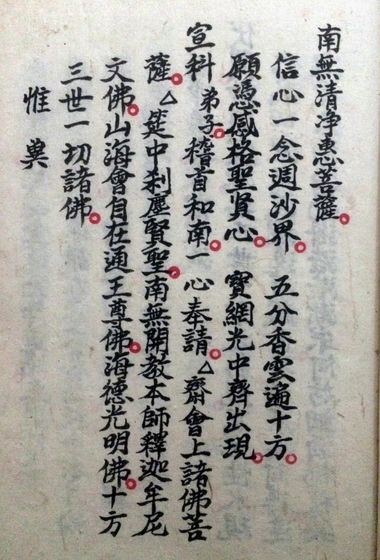 南無清净惠菩薩。
信心一念週沙界。五分香雲遍十方。
願憑感格聖賢心。寶網光中齊出現。
宣科弟子。稽首和南一心奉請。△齋會上諸佛菩
薩。△筵中刹塵賢聖。南無開教本師釋迦牟尼
文佛。山海會自在通王尊佛。海德光明佛。十方
三世一切諸佛。
惟兾